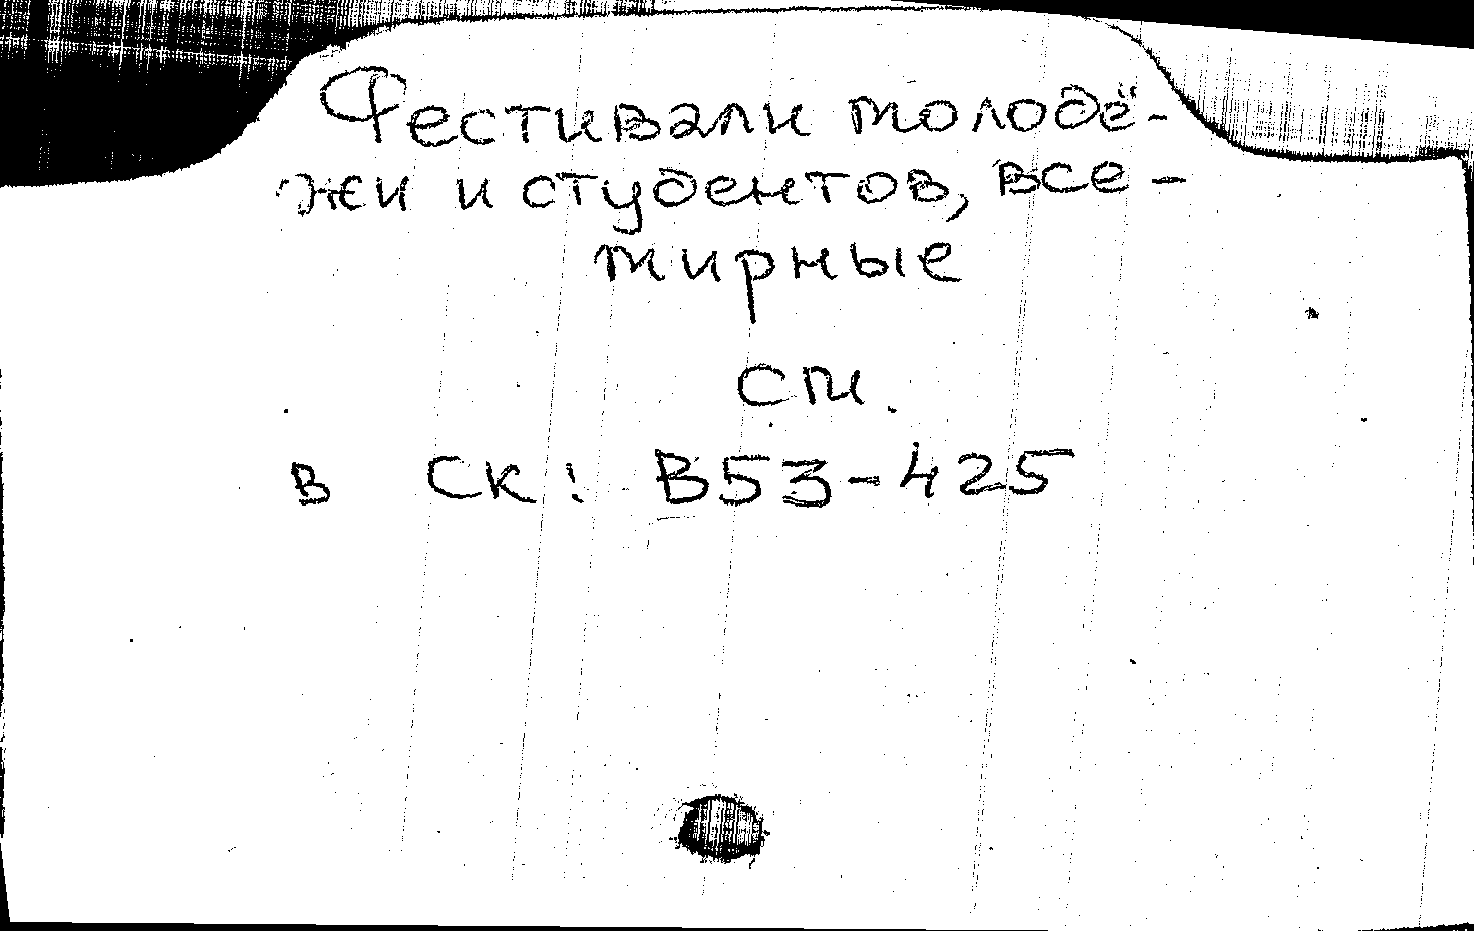 Фестивали молодё-
жи и студентов, все-
мирные
см.
в СК: В53-425